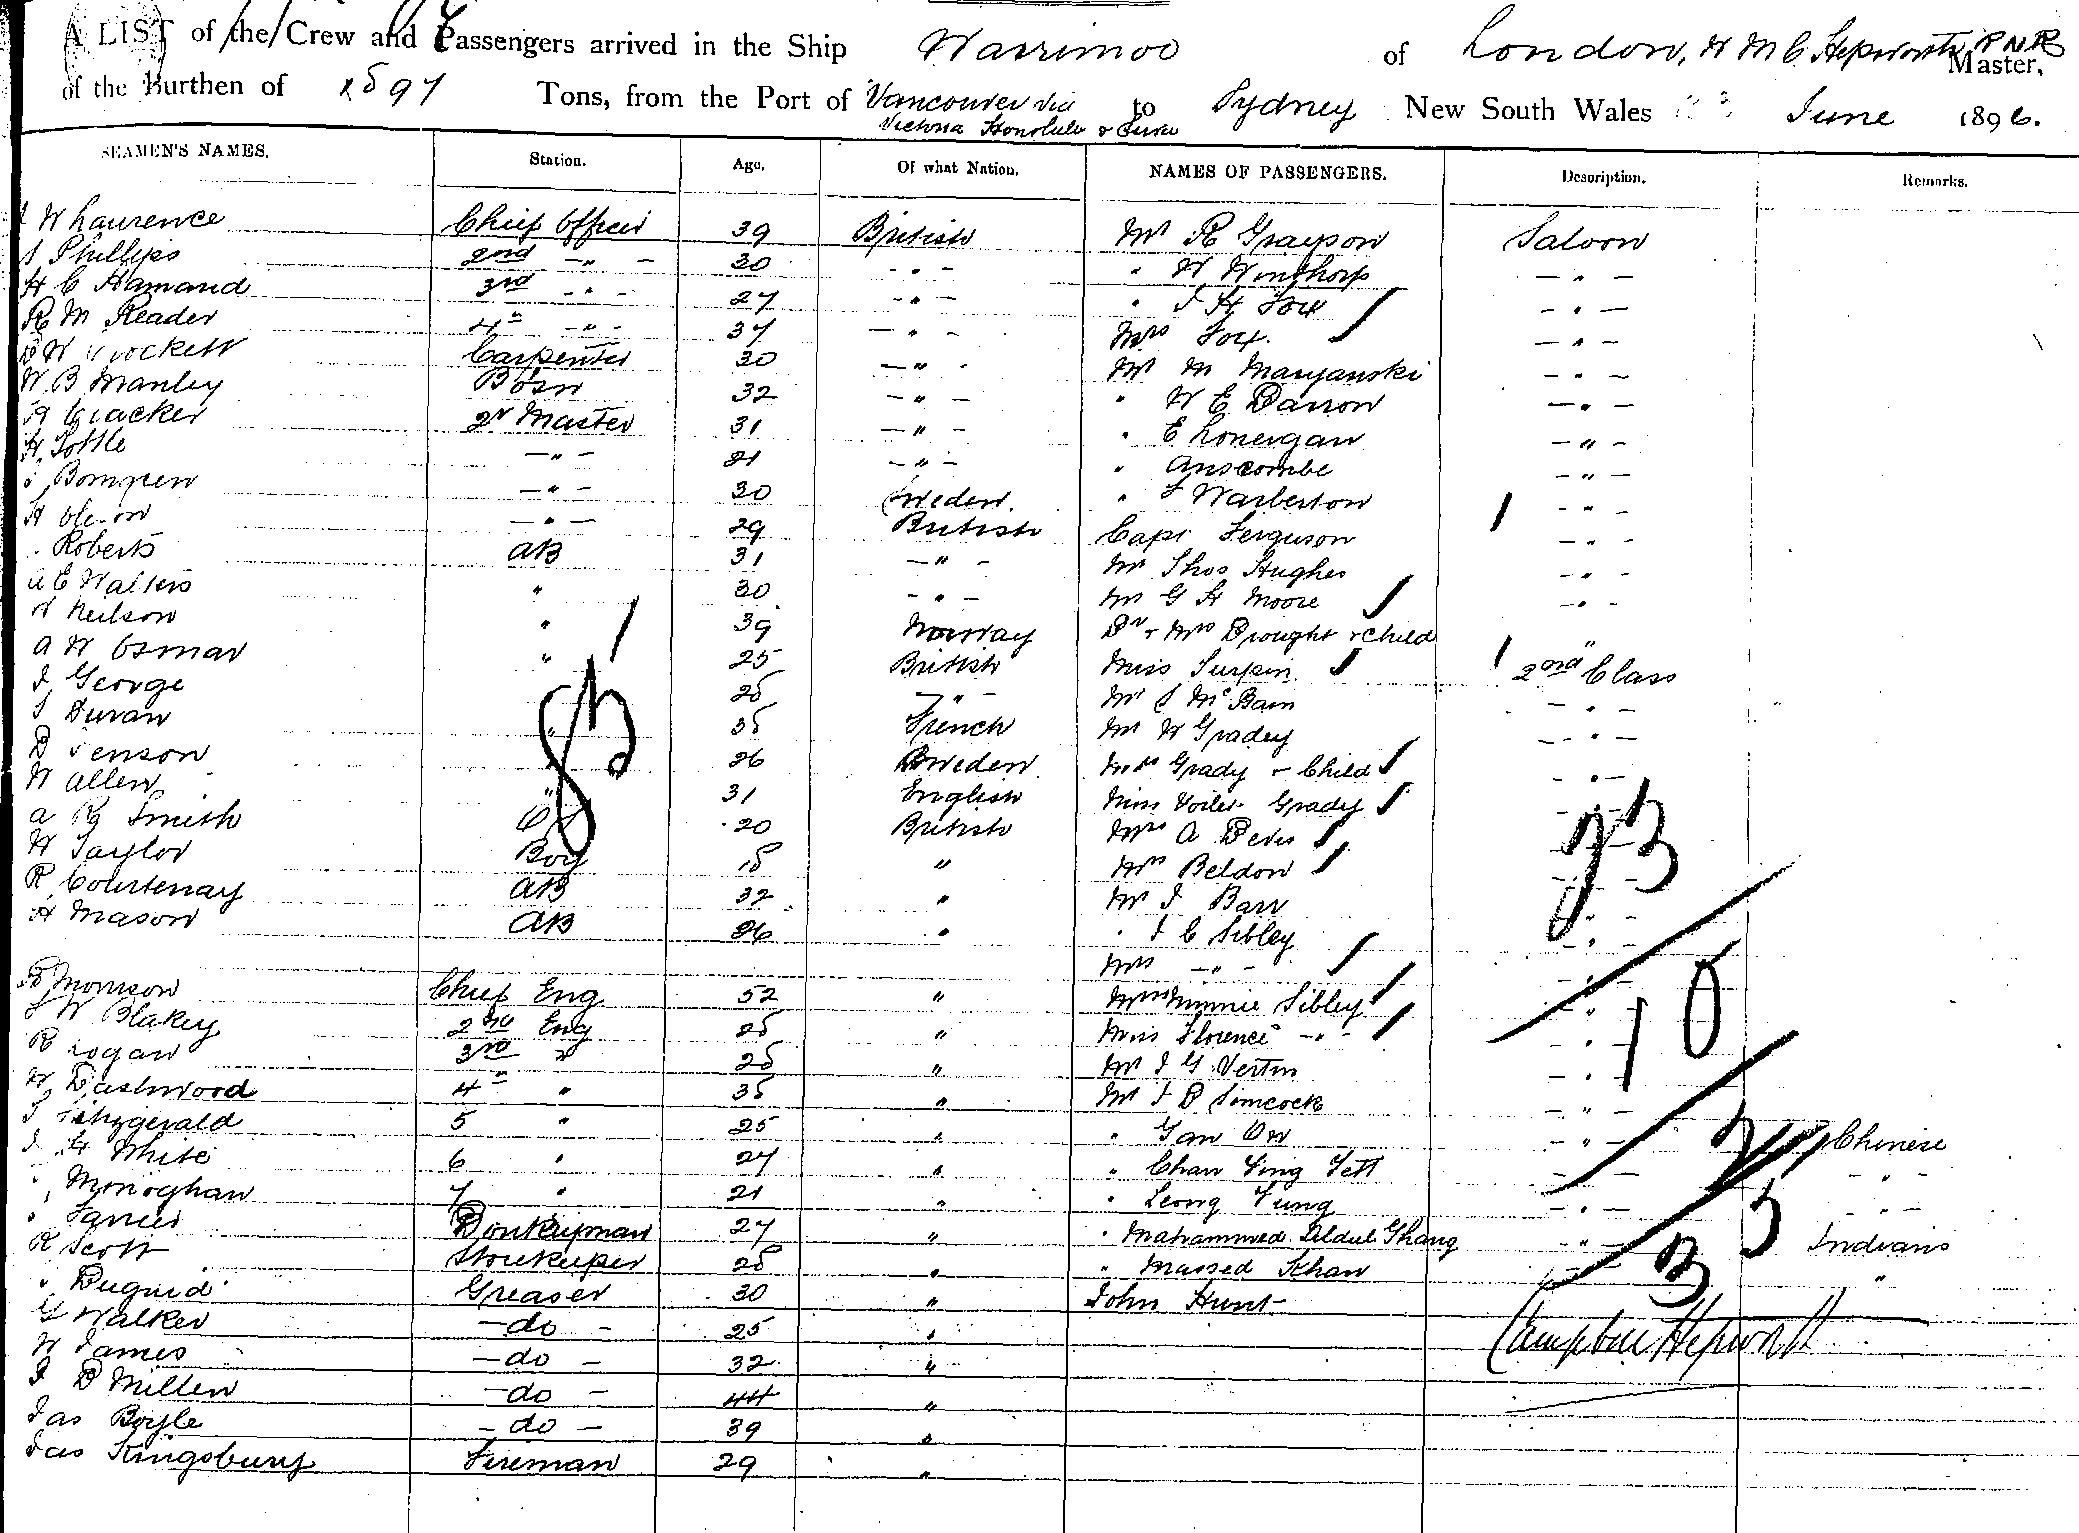 A LIST of the Crew and Passengers arrived in the Ship Warrimoo of London, W M C Hepworth, R N R Master,
of the Burthen of Tons, from the Port of Vancouver via to Sydney New South Wales June 1896.
Victoria Honolulu & Suva
SEAMEN'S NAMES. Station. Age. Of what Nation. NAMES OF PASSENGERS. Description. Remarks.
W Laurence Chief Officer 39 British Mr R Grayson Saloon
S Phillips 2nd - " - 30 - " - " W Winthorp - " -
H C Hamand 3rd - " - 27 - " - " J H Fox - " -
R M Reader 4th - " - 37 - " - Mrs Fox. - " -
Carpenter 30 - " - Mr M Maryanski - " -
W B Manley Bosn 32 - " - " W E Darron - " -
Cracker Qr Master 31 - " - " E Lonergan - " -
H Tottle - " - 21 - " - " Anscombe - " -
Bomgren - " - 30 Sweden. " F Warberton - " -
- " - 29 British Capt Ferguson - " -
Roberts AB 31 - " - Mr Thos Hughes - " -
A E Walters " 30 - " - Mr G H Moore - " -
Neilson " 39 Norway Dr & Mrs Drought & Child "
A W Osmar " 25 British Miss Turpin 2nd Class
J George 28 - " - Mr S McBain - " -
S Duran " 38 French Mr W Grady - " -
26 Sweden Mrs Grady & Child - " -
W Allen " 31 English Miss Voilet Grady
A Smith 20 British Mrs A Devis
W Taylor Boy 18 " Mrs Beldon
R Courtenay AB 32 " Mr J Barr
H Mason AB 26 " " J C Sibley
Mrs - " -
Morrison Chief Eng 52 " Minnie Sibley
W Blakey 2nd Eng 28 " Miss Florence - " -
R Logan 3rd " 28 " Mr J G Vertin - " -
W Dashwood 4th " 38 " Mr J P Simcock - " -
Fitzgerald 5 " 25 " " Gan On - " - Chinese
White 6 " 27 " " Chan Ying Tett - " - "
Monoghan 7 " 21 " " Leong Fung - " - - " -
Donkeyman 27 " " Mahammed Ghang - " - Indians
R Scott Storekeeper 28 " " Massed Khan "
Duguid Greaser 30 " John Hunt
G Walker - do - 25 " Campbell Hepworth
W James - do - 32 "
J D Millen - do - 44 "
Jas Boyle - do - 39 "
Jas Kingsbury Fireman 29 "